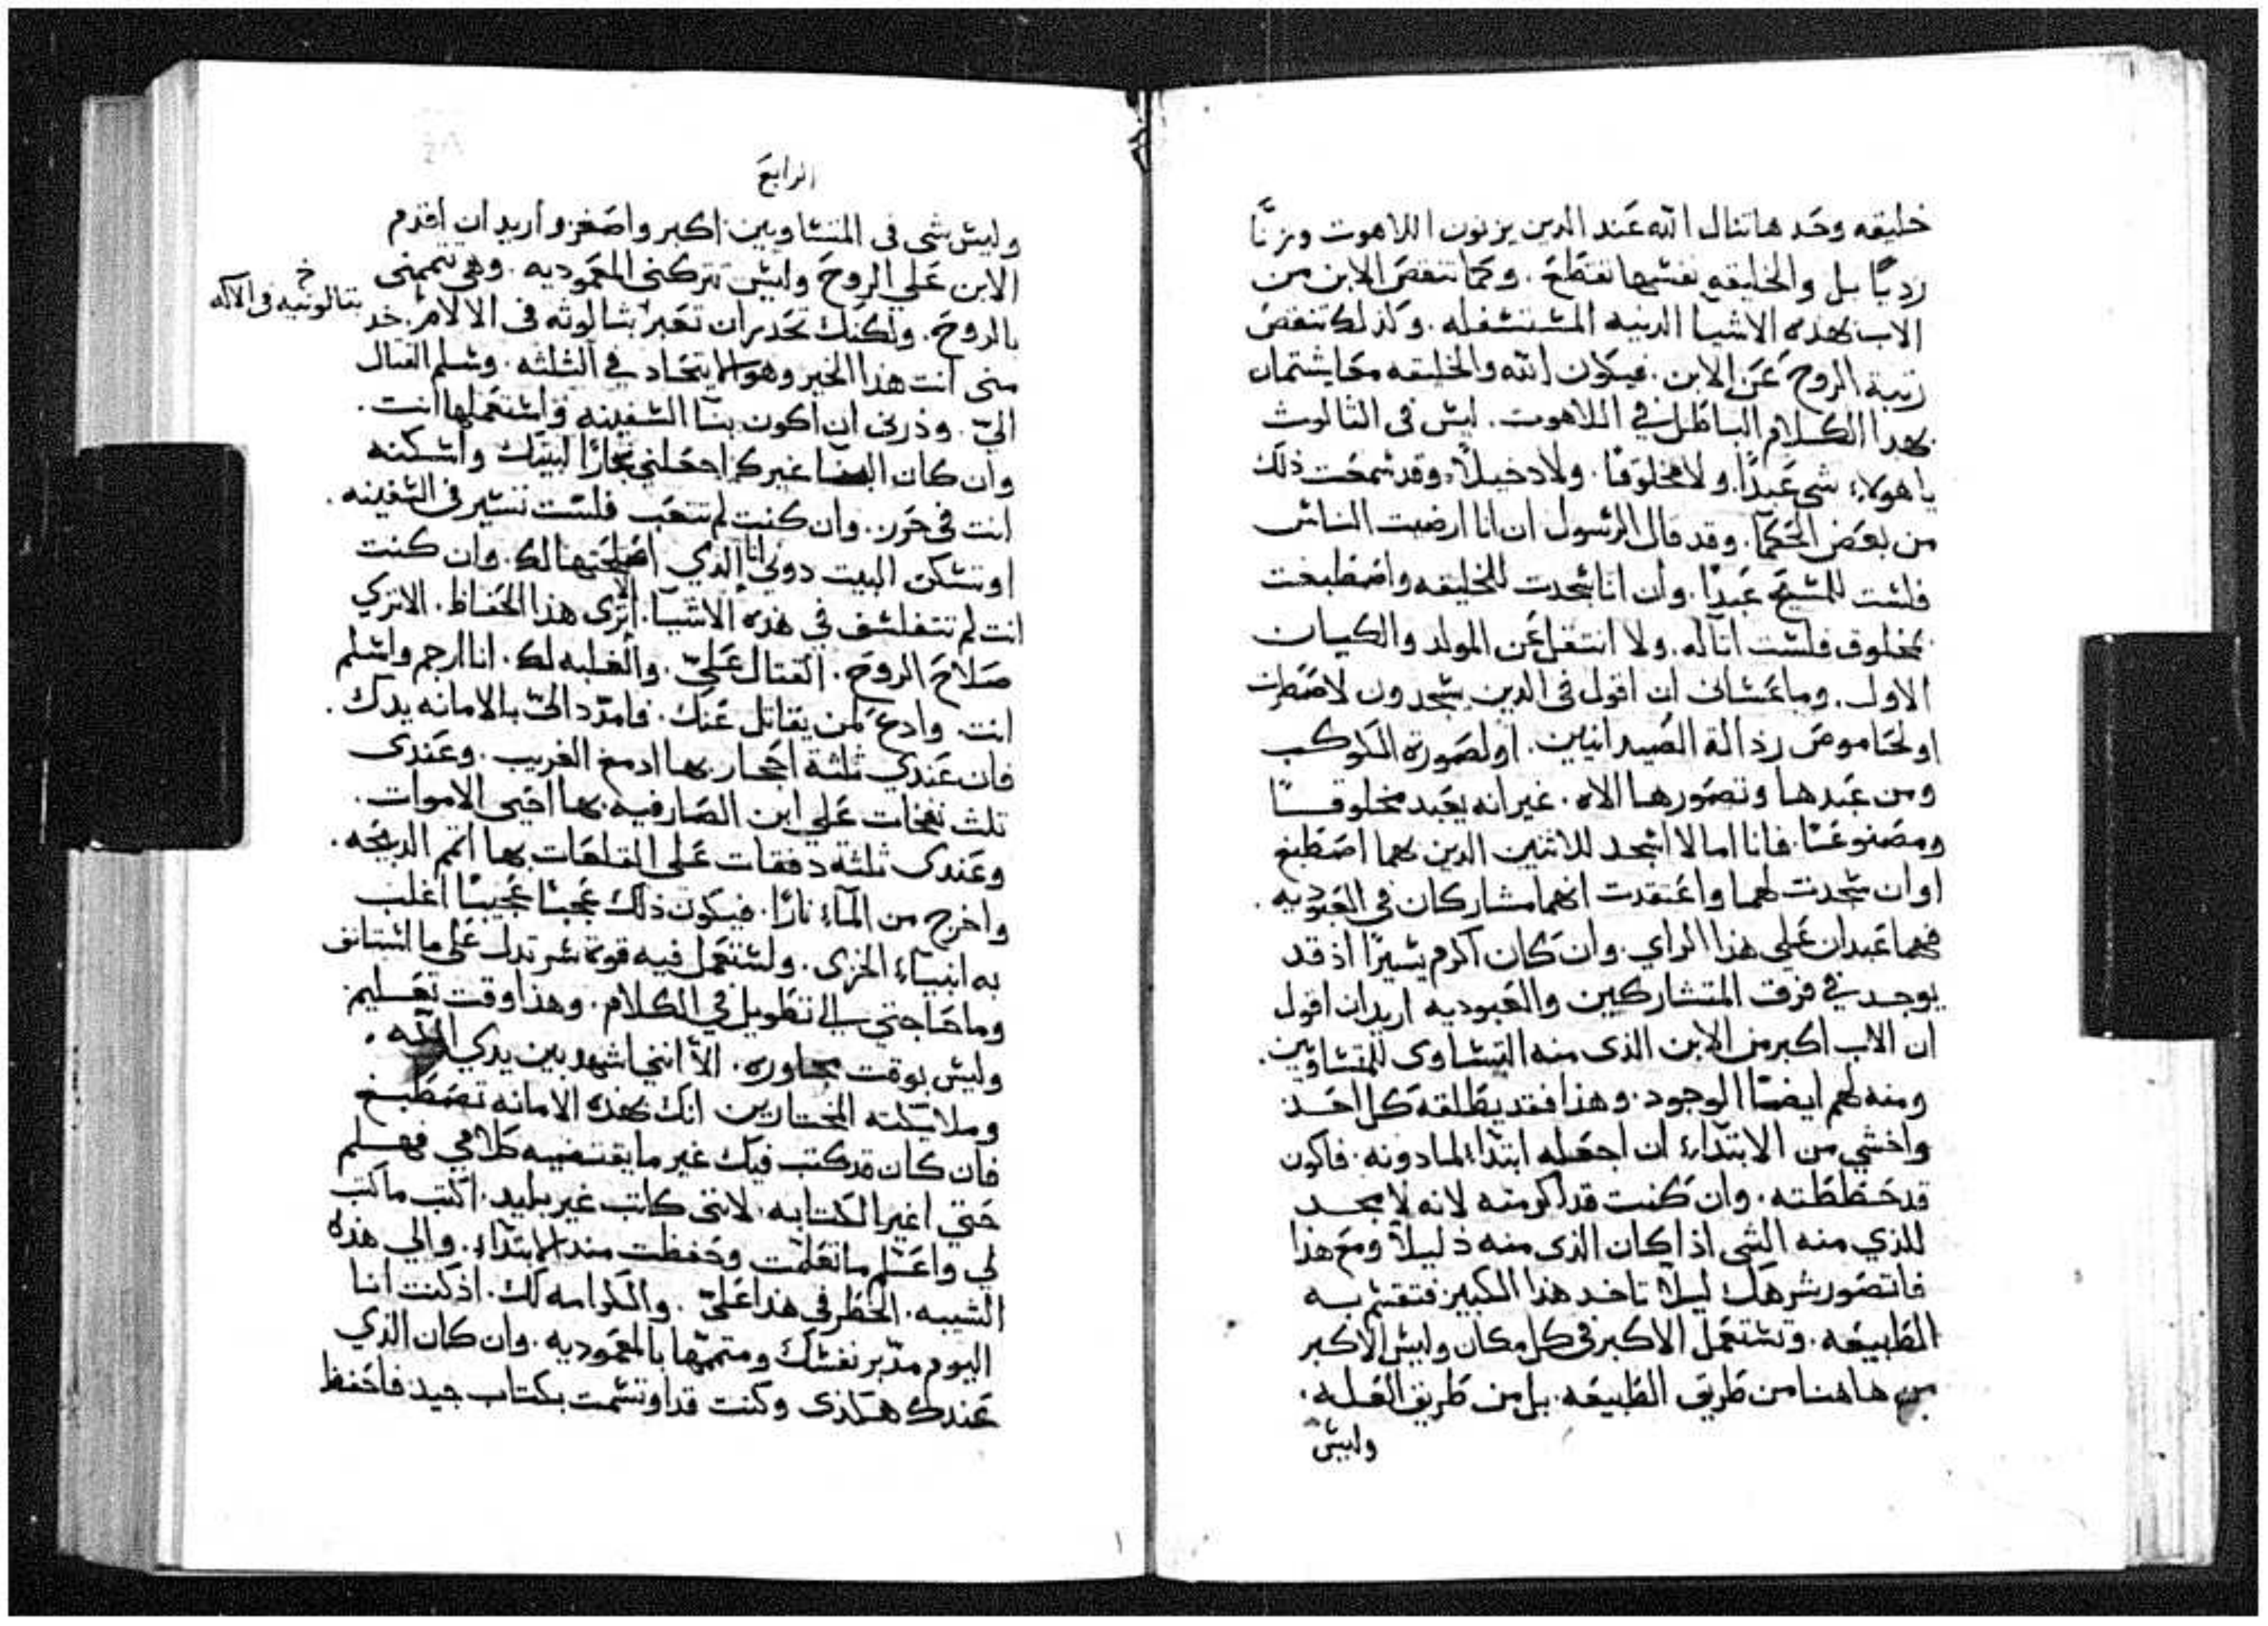 خليقه وحدها تنال الله عند الدين يزنون اللاهوت وزنًا
رديًا بل والخليقه نفسها تقطع. وكما تنقص الابن من
الاب بهده الاشيا الدنيه المستسفله. وكذلك تنقص
رتبة الروح عن الابن. فيكون الله والخليقه معا يشتمان
بهدا الكلام الباطل في اللاهوت. ليس في الثالوث
يا هولاء شي عبدًا. ولا مخلوقًا. ولا دخيلاً. وقد سمعت ذلك
من بعض الحكما. وقد قال الرسول ان انا ارضيت الناس
فلست للمسيح عبدًا. وان انا سجدت للخليقه واصطبغت
بمخلوق فلست اتاله. ولا انتقل عن المولد والكيان
الاول. وما عساني ان اقول في الدين يسجدون لاصطرت
او لخاموص رذالة الصيدانيين. او لصورة الكوكب
ومن عبدها وتصورها الاه. غير انه يعبد مخلوقًا
ومصنوعًا. فانا اما لا اسجد للاثنين الدين بهما اصطبغ
او ان سجدت لهما واعتقدت انهما مشاركان في العبوديه.
فهما عبدان علي هذا الراي. وان كان اكرم يسيرًا اذ قد
يوجد في فرق المتشاركين والعبوديه اريد ان اقول
ان الاب اكبر من الابن الذى منه التساوى للمتساويين.
ومنه لهم ايضًا الوجود. وهذا فقد يطلقه كل احد
واخشي من الابتداء ان اجعله ابتداء لما دونه. فاكون
قد حططته. وان كنت قد اكرمته لانه لا مجد
للذي منه الشى اذا كان الذى منه ذليلاً ومع هذا
فاتصور شرهك ليلا تاخد هذا الكبير فتقسم به
الطبيعه. وتستعمل الاكبر في كل مكان وليس الاكبر
من هاهنا من طريق الطبيعه. بل من طريق العله.
وليس
الرابع
وليس شى فى المتساويين اكبر واصغر واريد ان اقدم
الابن علي الروح وليس تتركني المعموديه. وهي تتممنى
بالروح. ولكنك تحدر ان تعير بثالوثه فى الالام. خد
خ بثالوثيه فى الآله
منى انت هذا الخير وهو الاتحاد في الثلثه. وسلم القتال
اليّ. وذرنى ان اكون بنا السفينه واستعملها انت.
وان كان ايضا غيرك اجعلني نجارًا لبيتك واسكنه
انت في حرز. وان كنت لم تتعب فلست تسير في السفينه.
او تسكن البيت دوني انا الذي اصلحتها لك. وان كنت
انت لم تتفلسف في هذه الاشيا. الا ترى هذا الحفاظ. الا تري
صلاح الروح. القتال عليّ. والغلبه لك. انا ارجم واسلم
انت. وادع لمن يقاتل عنك. فامدد اليّ بالامانه يدك.
فان عندي ثلثة احجار. بها ادمغ الغريب. وعندى
ثلث نفخات علي ابن الصارفيه بها احيي الاموات.
وعندى ثلثة دفقات على القلعات بها اتمم الدبيحه.
واخرج من المآء نارًا. فيكون ذلك عجبًا عجيبًا اغلب
به انبياء الخزى. ولستعمل فيه قوة سر تدل على ما استانف
وما حاجتي الى تطويل في الكلام. وهذا وقت تعليم
وليس بوقت محاوره. الا انني اشهد بين يدي الله.
وملايكته المختارين انك بهذه الامانه تصطبغ
فان كان قد كتب فيك غير ما يقتضيه كلامي فهلم
حتي اغير الكتابه. لانني كاتب غير بليد. اكتب ما كتب
لي واعلم ما تعلمت وحفظت منذ الابتداء. والي هذه
الشيبه. الخطر في هذا عليّ. والكرامه لك. اذ كنت انا
اليوم مدبر نفسك ومتممها بالمعموديه. وان كان الذي
عندك هكذى وكنت قد اوتسمت بكتاب جيد فاحفظ